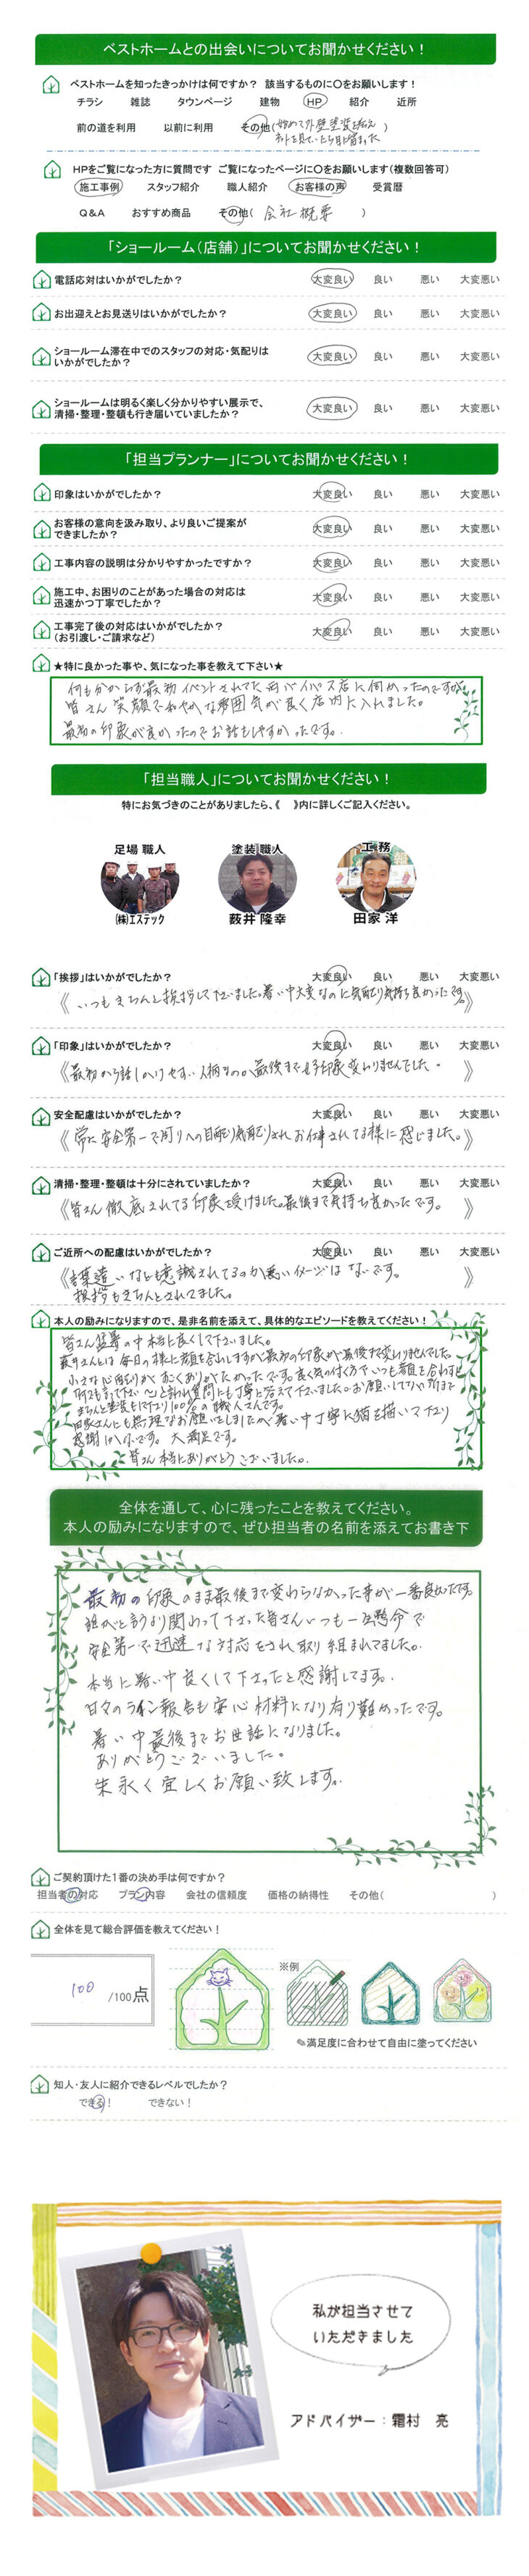 ベストホームとの出会いについてお聞かせください！
ベストホームを知ったきっかけは何ですか？ 該当するものに〇をお願いします！
チラシ 雑誌 タウンページ 建物 HP 紹介 近所
前の道を利用 以前に利用 その他( 初めて外壁塗装を考え )
ネットを見ていたら目に留まった
HPをご覧になった方に質問です ご覧になったページに〇をお願いします（複数回答可）
施工事例 スタッフ紹介 職人紹介 お客様の声 受賞暦
Q&A おすすめ商品 その他( 会社概要 )
「ショールーム（店舗）」についてお聞かせください！
電話応対はいかがでしたか？ 大変良い 良い 悪い 大変悪い
お出迎えとお見送りはいかがでしたか？ 大変良い 良い 悪い 大変悪い
ショールーム滞在中でのスタッフの対応・気配りは
いかがでしたか？ 大変良い 良い 悪い 大変悪い
ショールームは明るく楽しく分かりやすい展示で、
清掃・整理・整頓も行き届いていましたか？ 大変良い 良い 悪い 大変悪い
「担当プランナー」についてお聞かせください！
印象はいかがでしたか？ 大変良い 良い 悪い 大変悪い
お客様の意向を汲み取り、より良いご提案が
できましたか？ 大変良い 良い 悪い 大変悪い
工事内容の説明は分かりやすかったですか？ 大変良い 良い 悪い 大変悪い
施工中、お困りのことがあった場合の対応は
迅速かつ丁寧でしたか？ 大変良い 良い 悪い 大変悪い
工事完了後の対応はいかがでしたか？
（お引渡し・ご請求など） 大変良い 良い 悪い 大変悪い
★特に良かった事や、気になった事を教えて下さい★
何も分からず最初イベントされてた バイパス店に伺ったのですが
皆さん笑顔で和やかな雰囲気が良く店内に入れました。
最初の印象が良かったのでお話もしやすかったです。
「担当職人」についてお聞かせください！
特にお気づきのことがありましたら、《 》内に詳しくご記入ください。
足場 職人 塗装 職人 工 務
㈱エステック 薮井 隆幸 田家 洋
「挨拶」はいかがでしたか？ 大変良い 良い 悪い 大変悪い
《いつもきちんと挨拶して下さいました。暑い中大変なのに気配り気持ち良かったです。》
「印象」はいかがでしたか？ 大変良い 良い 悪い 大変悪い
《最初から話しかけやすい人柄なのか最後まで 印象変わりませんでした。》
安全配慮はいかがでしたか？ 大変良い 良い 悪い 大変悪い
《常に安全第一で周りへの目配り気配りされお仕事されてる様に感じました。》
清掃・整理・整頓は十分にされていましたか？ 大変良い 良い 悪い 大変悪い
《皆さん徹底されてる印象を受けました。最後まで気持ち良かったです。》
ご近所への配慮はいかがでしたか？ 大変良い 良い 悪い 大変悪い
《言葉遣いなども意識されてるのか悪いイメージはないです。
挨拶もきちんとされてました。》
本人の励みになりますので、是非名前を添えて、具体的なエピソードを教えてください！
皆さん猛暑の中本当に良くして下さいました。
薮井さんとは毎日の様に顔を合わしますが最初の印象が最後まで変わりませんでした。
小さな心配りが ありがたかったです。良い気の付く方でいつも顔を合わすと
何でも言って下さい〜と 質問にも丁寧に答えて下さいました。お願いしてない所まで
きちんと塗装して下さり100%の職人さんです。
田家さんにも無理なお願いをしましたが暑い中丁寧に猫を描いて下さり
感謝 です。大満足です。
皆さん本当にありがとうございました。
全体を通して、心に残ったことを教えてください。
本人の励みになりますので、ぜひ担当者の名前を添えてお書き下
最初の印象のまま最後まで変わらなかった事が一番良かったです。
誰がと言うより関わって下さった皆さんいつも一生懸命で
安全第一で迅速な対応をされ取り組まれてました。
本当に暑い中良くして下さったと感謝してます。
日々のライン報告も安心材料になり有り難かったです。
暑い中最後までお世話になりました。
ありがとうございました。
末永く宜しくお願い致します。
ご契約頂けた1番の決め手は何ですか？
担当者の対応 プラン内容 会社の信頼度 価格の納得性 その他( )
全体を見て総合評価を教えてください！
100 /100点
※例
✎満足度に合わせて自由に塗ってください
知人・友人に紹介できるレベルでしたか？
できる！ できない！
私が担当させて
いただきました
アドバイザー：霜村 亮